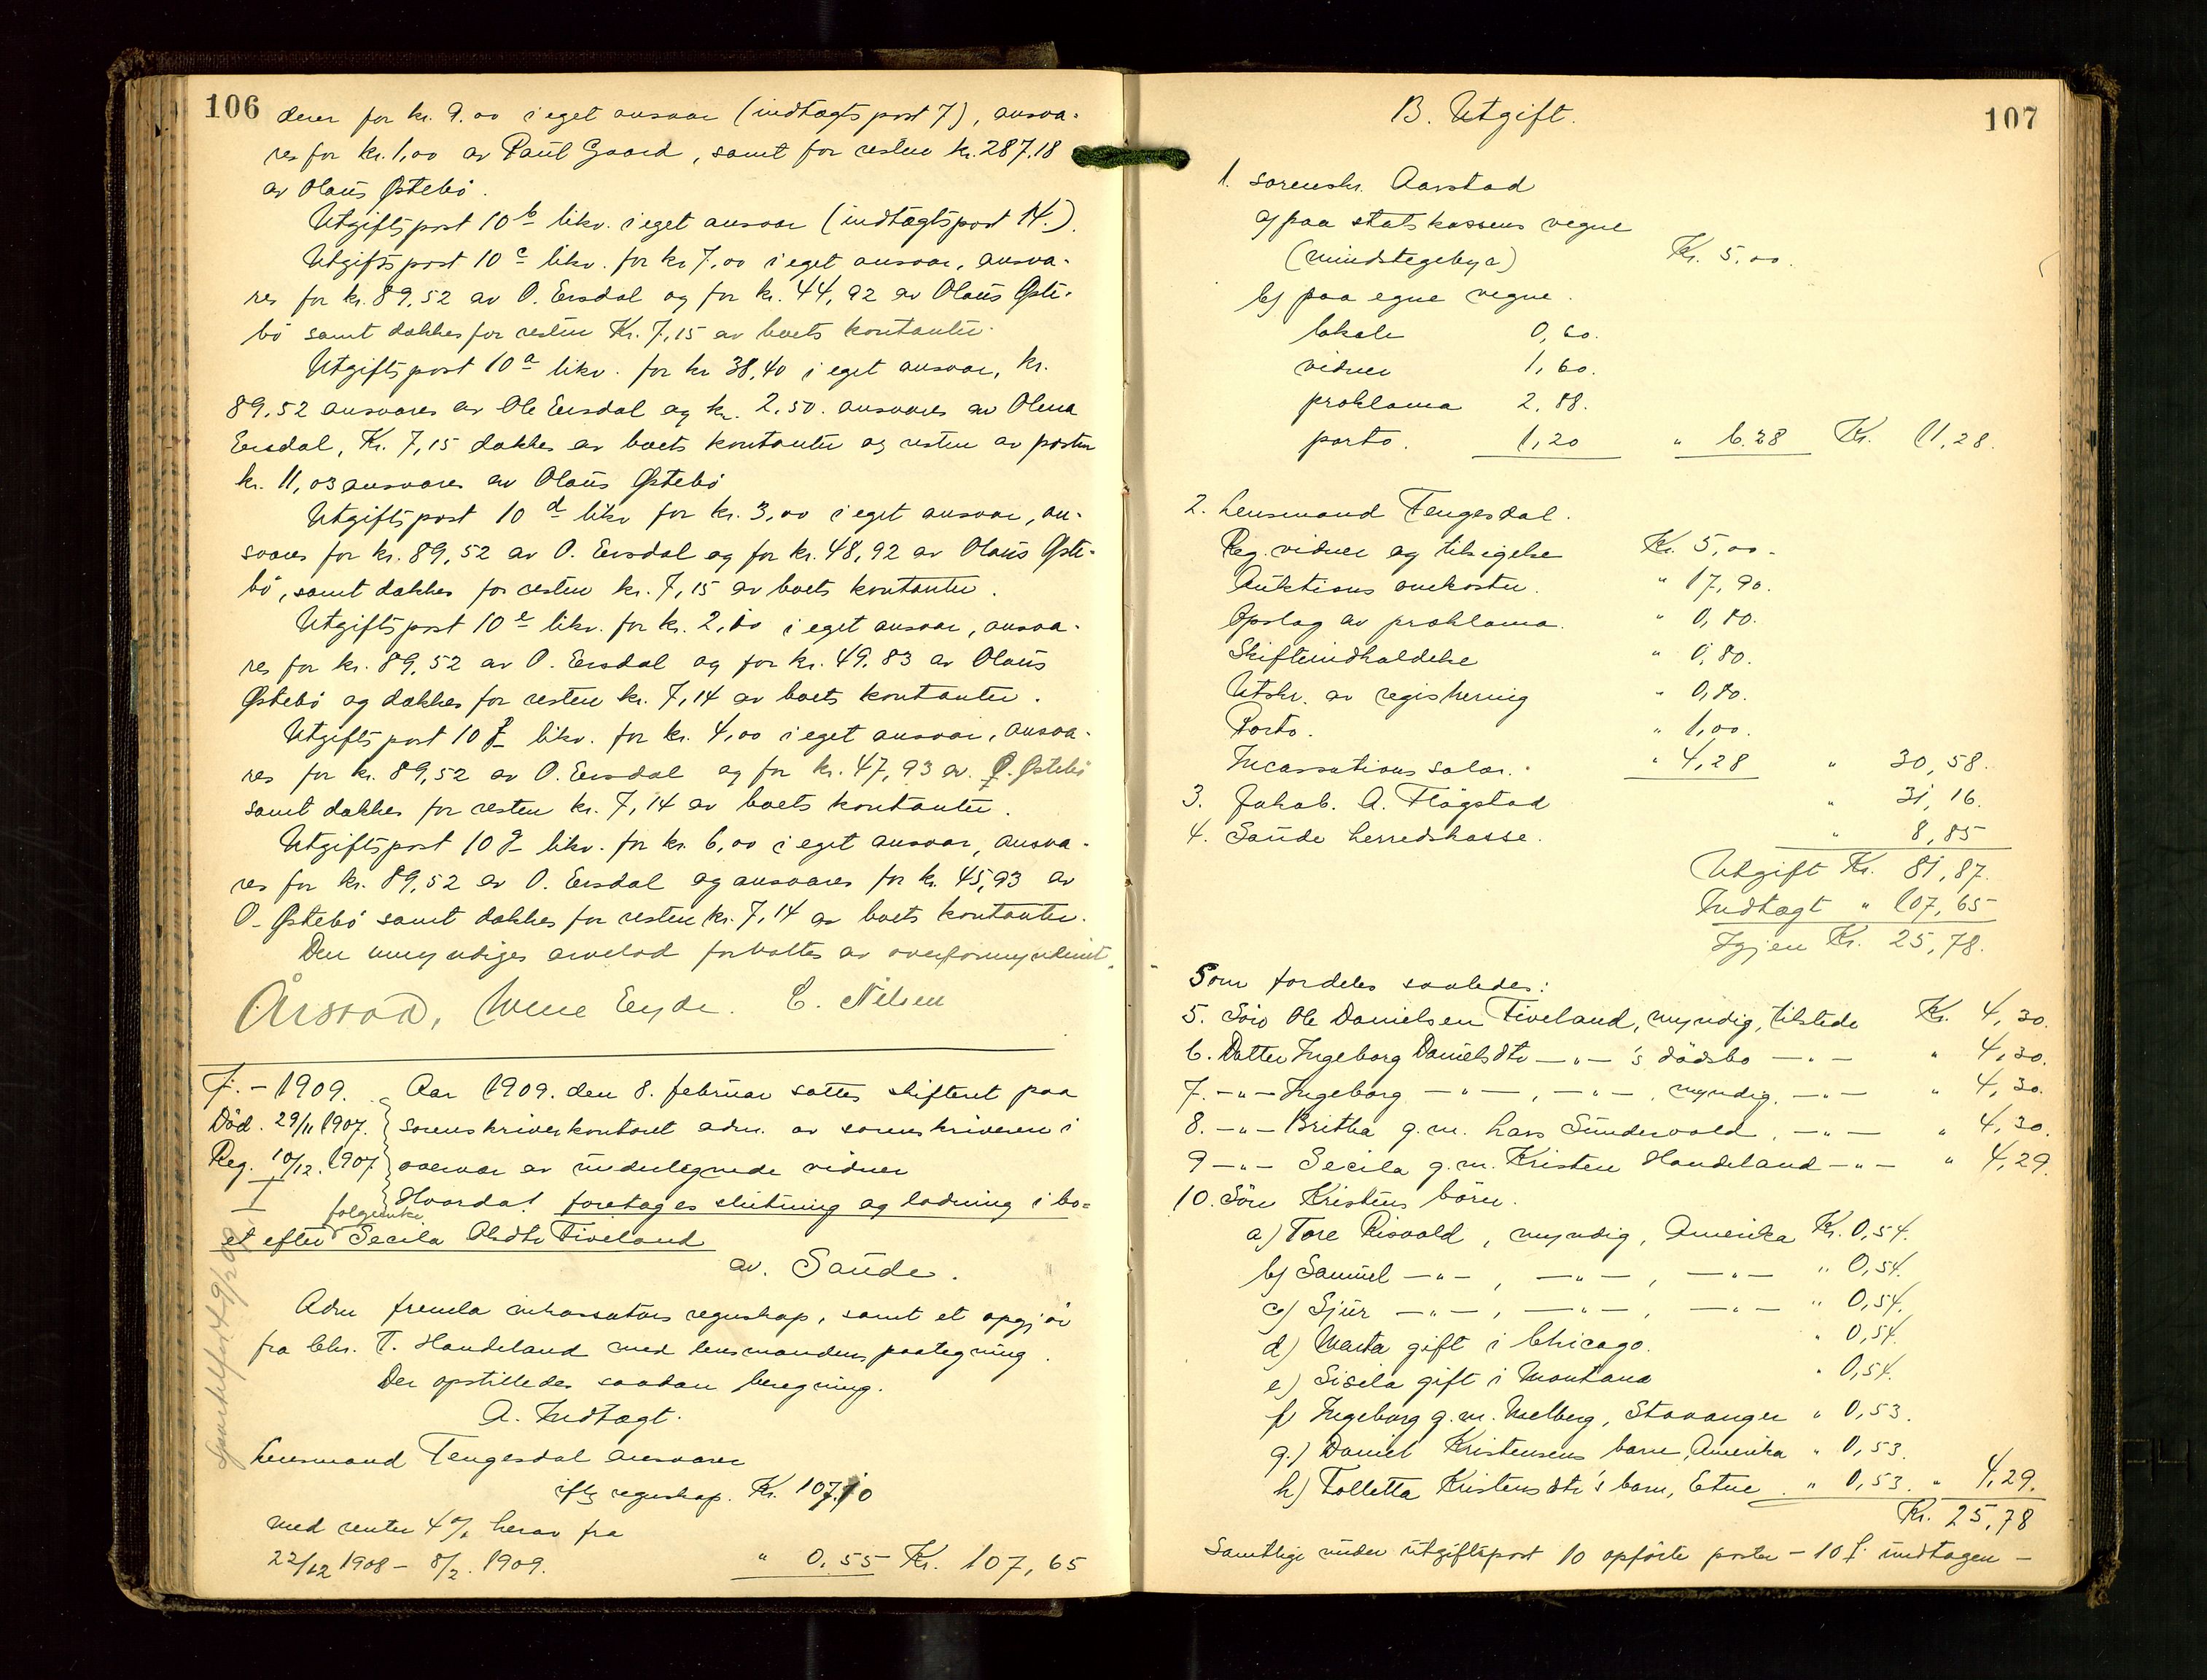 106
derer for kr. 9.00 i eget ansvar (indtægtspost 7), ansva-
res for kr. 1,00 av Paul Gaard, samt for resten kr. 287,18
av Olaus Østebö.
Utgiftspost 10 b likv. i eget ansvar (indtægtspost 14.).
Utgiftspost 10 c likv. for kr 7,00 i eget ansvar, ansva-
res for kr. 89,52 av O. Eersdal og for kr. 44,92 av Olaus Øste-
bö samt dækkes for resten Kr. 7,15 av boets kontanter.
Utgiftspost 10 a likv. for kr 38,40 i eget ansvar, kr.
89,52 ansvares av Ole Eersdal og kr. 2,50. ansvares av Olena
Eersdal, Kr. 7,15 dækkes av boets kontanter og resten av posten
kr. 11,03 ansvares av Olaus Østebö
Utgiftspost 10 d likv for kr. 3,00 i eget ansvar, an-
svares for kr. 89,52 av O. Eersdal og for kr. 48,92 av Olaus Øste-
bö, samt dækkes for resten kr. 7,15 av boets kontanter.
Utgiftspost 10 e likv. for kr. 2,10 i eget ansvar, ansva-
res for kr. 89,52 av O. Eersdal og for kr. 49,83 av Olaus
Østebö og dækkes for resten kr. 7,14 av boets kontanter.
Utgiftspost 10 f likv. for kr. 4,00 i eget ansvar, ansva-
res for kr. 89,52 av O. Eersdal og for kr. 47,93 av O. Østebö
samt dækkes for resten kr. 7,14 av boets kontanter.
Utgiftspost 10 g likv. for kr. 6,00 i eget ansvar, ansva-
res for kr. 89,52 av O. Eersdal og ansvares for kr. 45,93 av
O. Østebö samt dækkes for resten kr. 7,14 av boets kontanter.
Den umyndiges arvelod forvaltes av overformynderiet.
Årstad, Eeyde. C. Nilsen
7. - 1909. Aar 1909. den 8. februar sattes skifteret paa
Död. 29/11 1907. sorenskriverkontoret adm. av sorenskriveren i
Reg. 10/12. 1907 overvær av undertegnede vidner
I Hvorda! foretages slutning og lodning i bo-
fælgeenke
et efter Secila Olsdtr Tiveland
av. Saude.
Adm fremla inkassators regnskap, samt et opgjör
fra lehr. T. Handeland med lensmandens paategning.
Der opstilledes saadan beregning.
A. Indtægt.
Lensmand Tengesdal ansvarer
iflg regnskap. Kr. 107.10
med renter 4% herav fra
22/12 1908 - 8/2. 1909. " 0,55 Kr. 107,65
107
B. Utgift.
1. sorenskr. Aarstad
a) paa statskassens vegne
(mindstegebyr) Kr. 5,00.
b) paa egne vegne.
lokale 0,60.
vidner 1,60.
proklama 2,88.
porto. 1,20 " 6.28 Kr. 11,28.
2. Lensmand Tengesdal.
Reg. vidner og tilsigelse Kr. 5,00.
Auktions omkoster. " 17,90.
Opslag av proklama. " 0,80.
Skifteindkaldelse " 0,80.
Utskr. av registrering " 0,80.
Porto. " 1,00.
Incassations salær. " 4,28 " 30,58.
3. Jakob. A. Flögstad " 31,16.
4. Saude herredskasse. " 8,85
Utgift Kr. 81,87.
Indtægt " 107,65
Igjen Kr. 25,78.
Som fordeles saaledes:
5. Sön Ole Danielsen Tiveland, myndig, tilstede Kr. 4,30.
6. Datter Ingeborg Danielsdtr -"- 's dödsbo -"- " 4,30.
7. -"- Ingeborg -"-, -"-, myndig, -"- " 4,30.
8. -"- Britha g.m. Lars Sundsvold, -"- " 4,30.
9 -"- Secila g.m. Kristen Handeland -"- " 4,29.
10. Sön Kristens börn.
a) Tore Risvold, myndig, Amerika Kr. 0,54.
b) Samuel -"-, -"-, -"- " 0,54.
c) Sjur -"-, -"-, -"- " 0,54.
d) Marta gift i Chicago. " 0,54.
e) Sisila gift i Montana " 0,54.
f) Ingeborg g.m. Melberg, Stavanger " 0,53.
g.) Daniel Kristensens barn, Amerika " 0,53.
h) Tolletta Kristensdtr's barn, Etne. " 0,53. " 4,29.
Kr. 25,78
Samtlige under utgiftspost 10 opförte poster - 10 f. undtagen -